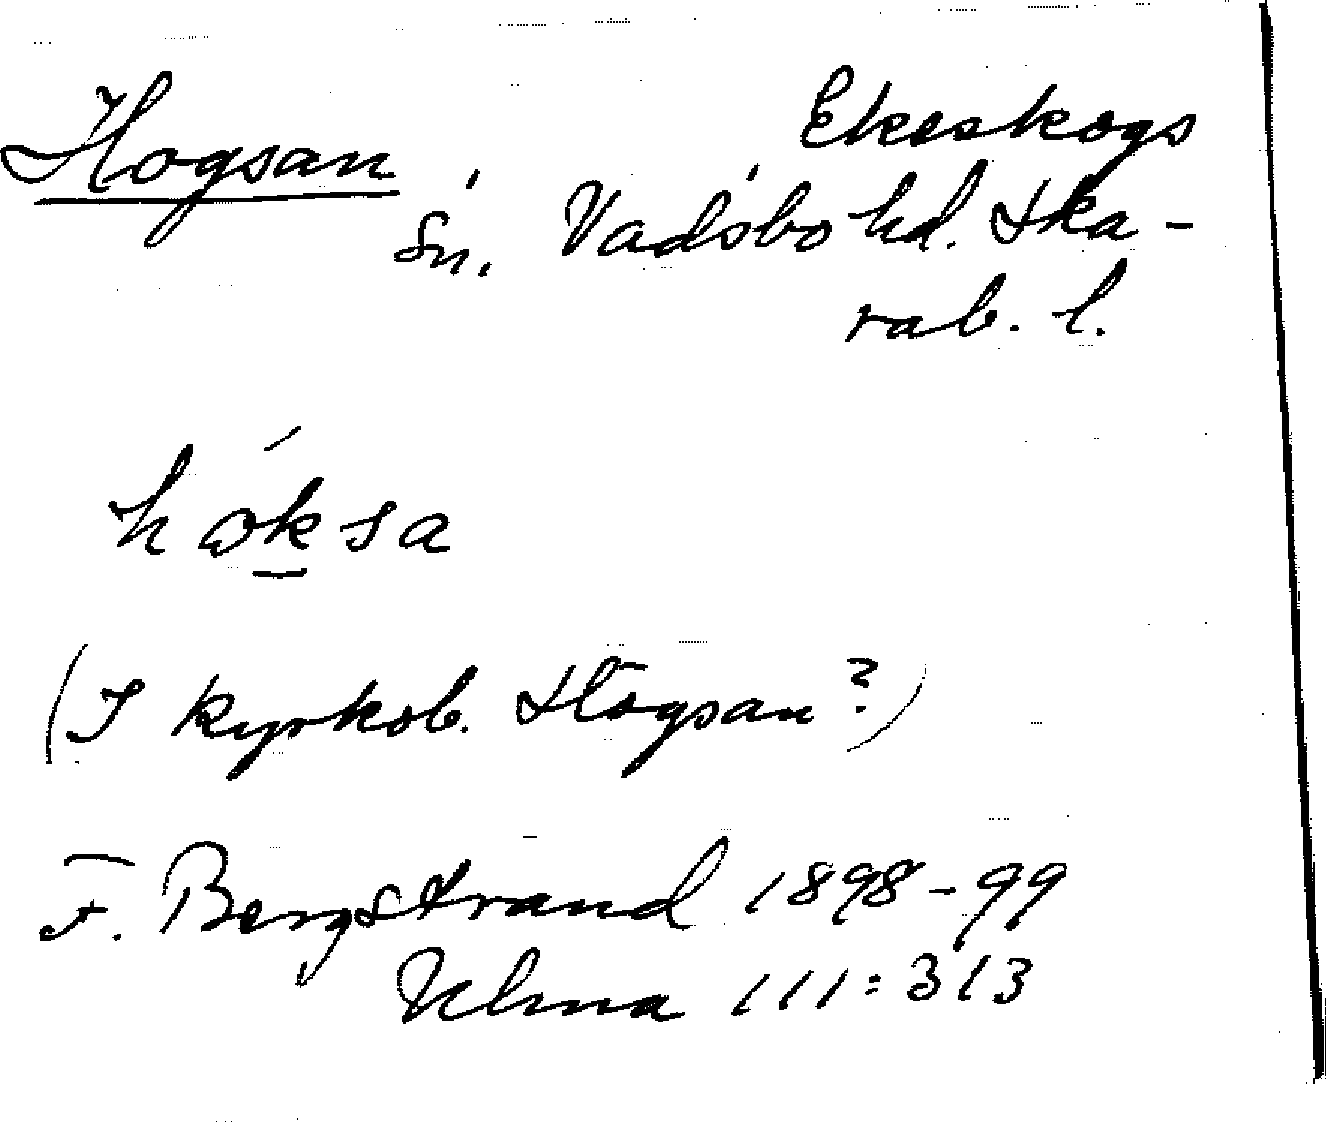 Hogsan Ekeskogs
sn. Vadsbo hd. Ska-
rab. l.
håksa
(I kyrkob. Hogsan?)
F. Bergstrand 1898-99
Uhma 111:313